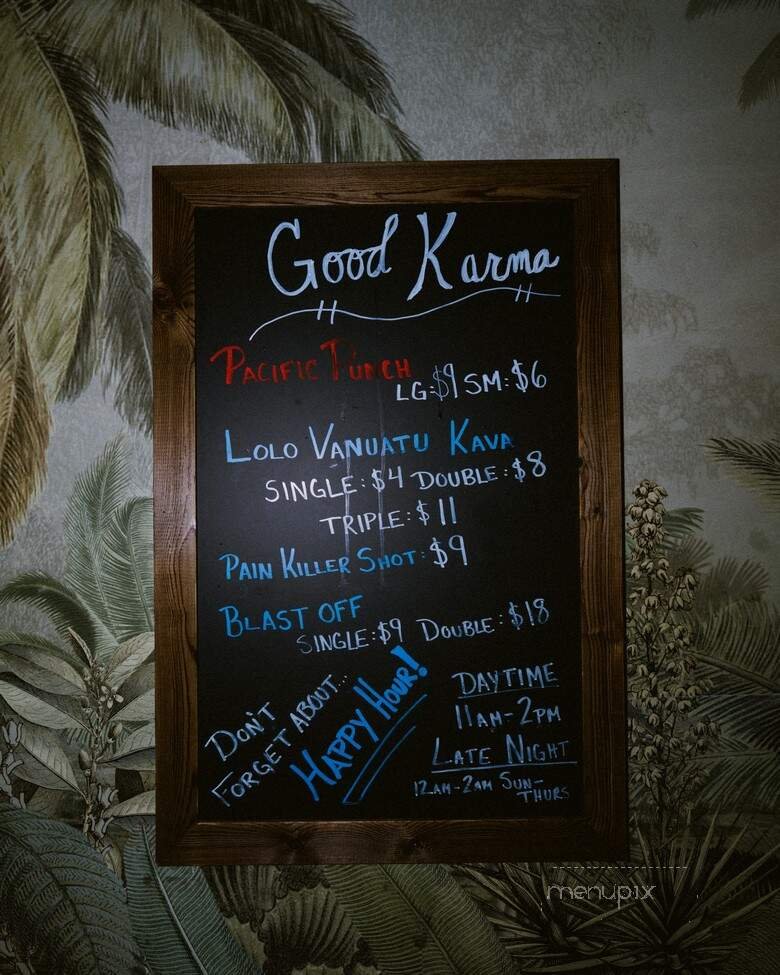 Good Karma
PACIFIC PUNCH
LG:$9 SM:$6
LOLO VANUATU KAVA
SINGLE:$4 DOUBLE:$8
TRIPLE:$11
PAIN KILLER SHOT:$9
BLAST OFF
SINGLE:$9 DOUBLE:$18
DON'T
FORGET ABOUT...
HAPPY HOUR!
DAYTIME
11AM-2PM
LATE NIGHT
12AM-2AM SUN-
THURS
menupix